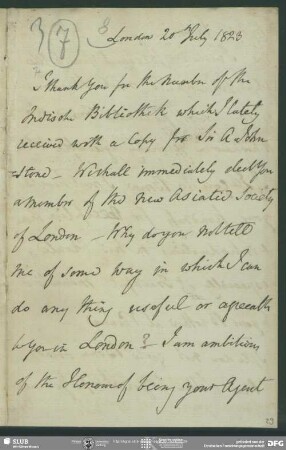 3
7
8
London 20 July 1823
I thank You for the Number of the
Indische Bibliothek which I lately
received with a Copy for Sir A John
=stone – We shall immediately elect You
a member of the new Asiatic Society
of London – Why do you not tell
me of some way in which I can
do any thing useful or agreeable
to you in London? – I am ambitious
of the Honour of being your Agent
SLUB
DFG